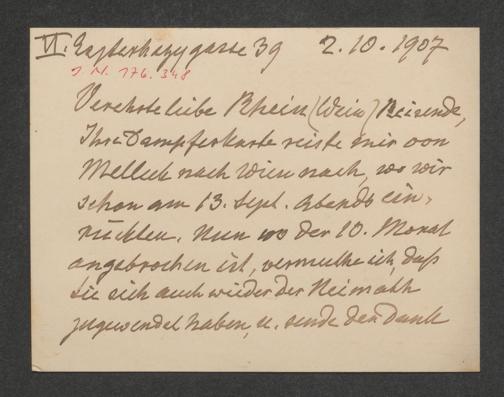 VI. Eszterhazygasse 39 2.10.1907
J.N. 176.348
Verehrte liebe Rhein (Wein) Reisende,
Ihre Dampferkarte reiste mir von
Melleck nach Wien nach, wo wir
schon am 13. Sept. abends ein-
rückten. Nun wo der 10. Monat
angebrochen ist, vermuthe ich, daß
sie sich auch wieder der Heimath
zugewendet haben, u. sende den Dank